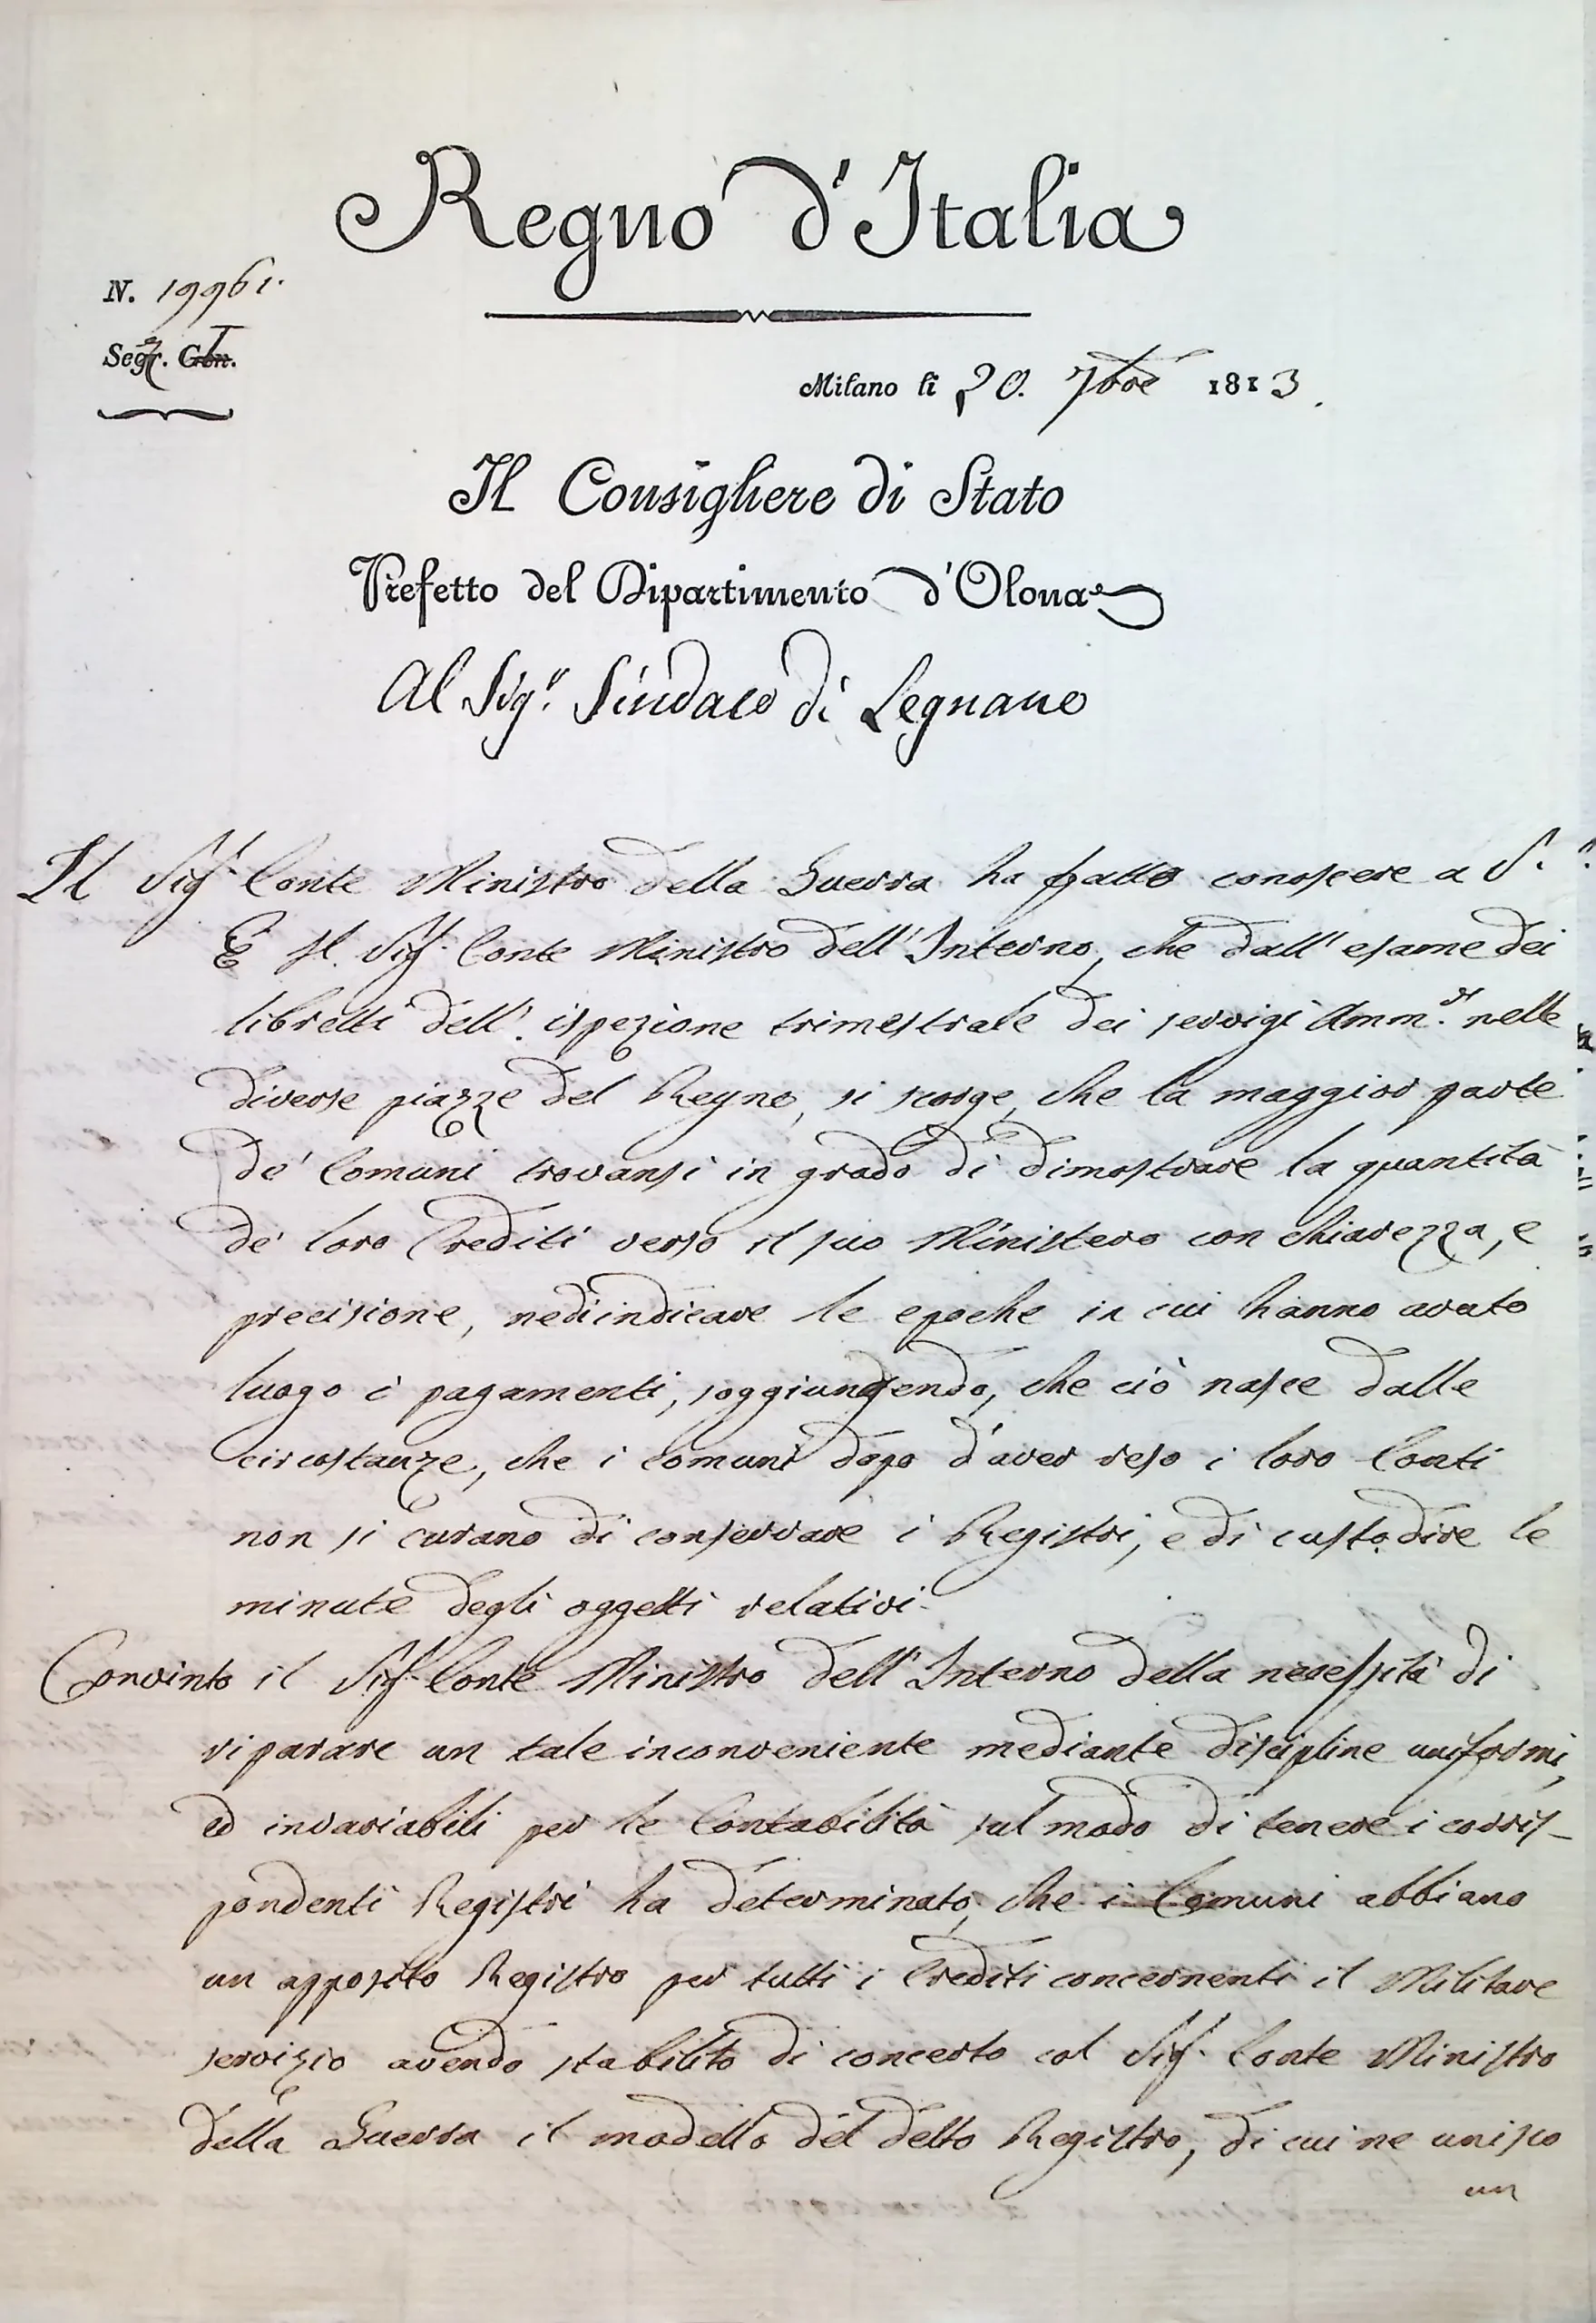 Regno d'Italia
N. 19961.
Segr. Gen.
Milano li 20. 7bre 1813.
Il Consigliere di Stato
Prefetto del Dipartimento d'Olona
Al Sigr. Sindaco di Legnano
Il Sigr. Conte Ministro della Guerra ha fatto conoscere a S.
E il Sigr. Conte Ministro dell'Interno, che dall'esame dei
libretti dell'ispezione trimestrale dei servigi Amm. nelle
diverse piazze del Regno, si scorge, che la maggior parte
de' Comuni trovansi in grado di dimostrare la quantità
de' loro Crediti verso il suo Ministero con chiarezza, e
precisione, nediindicare le epoche in cui hanno avuto
luogo i pagamenti, soggiungendo, che ciò nasce dalle
circostanze, che i comuni dopo d'aver reso i loro Conti
non si curano di conservare i Registri, e di custodire le
minute degli oggetti relativi.
Convinto il Sigr. Conte Ministro dell'Interno della necessità di
riparare un tale inconveniente mediante discipline uniformi,
ed invariabili per le Contabilità sul modo di tenere i corris-
pondenti Registri ha determinato, che i Comuni abbiano
un apposito Registro per tutti i Crediti concernenti il Militare
servizio avendo stabilito di concerto col Sigr. Conte Ministro
della Guerra il modello del detto Registro, di cui ne unisco
un